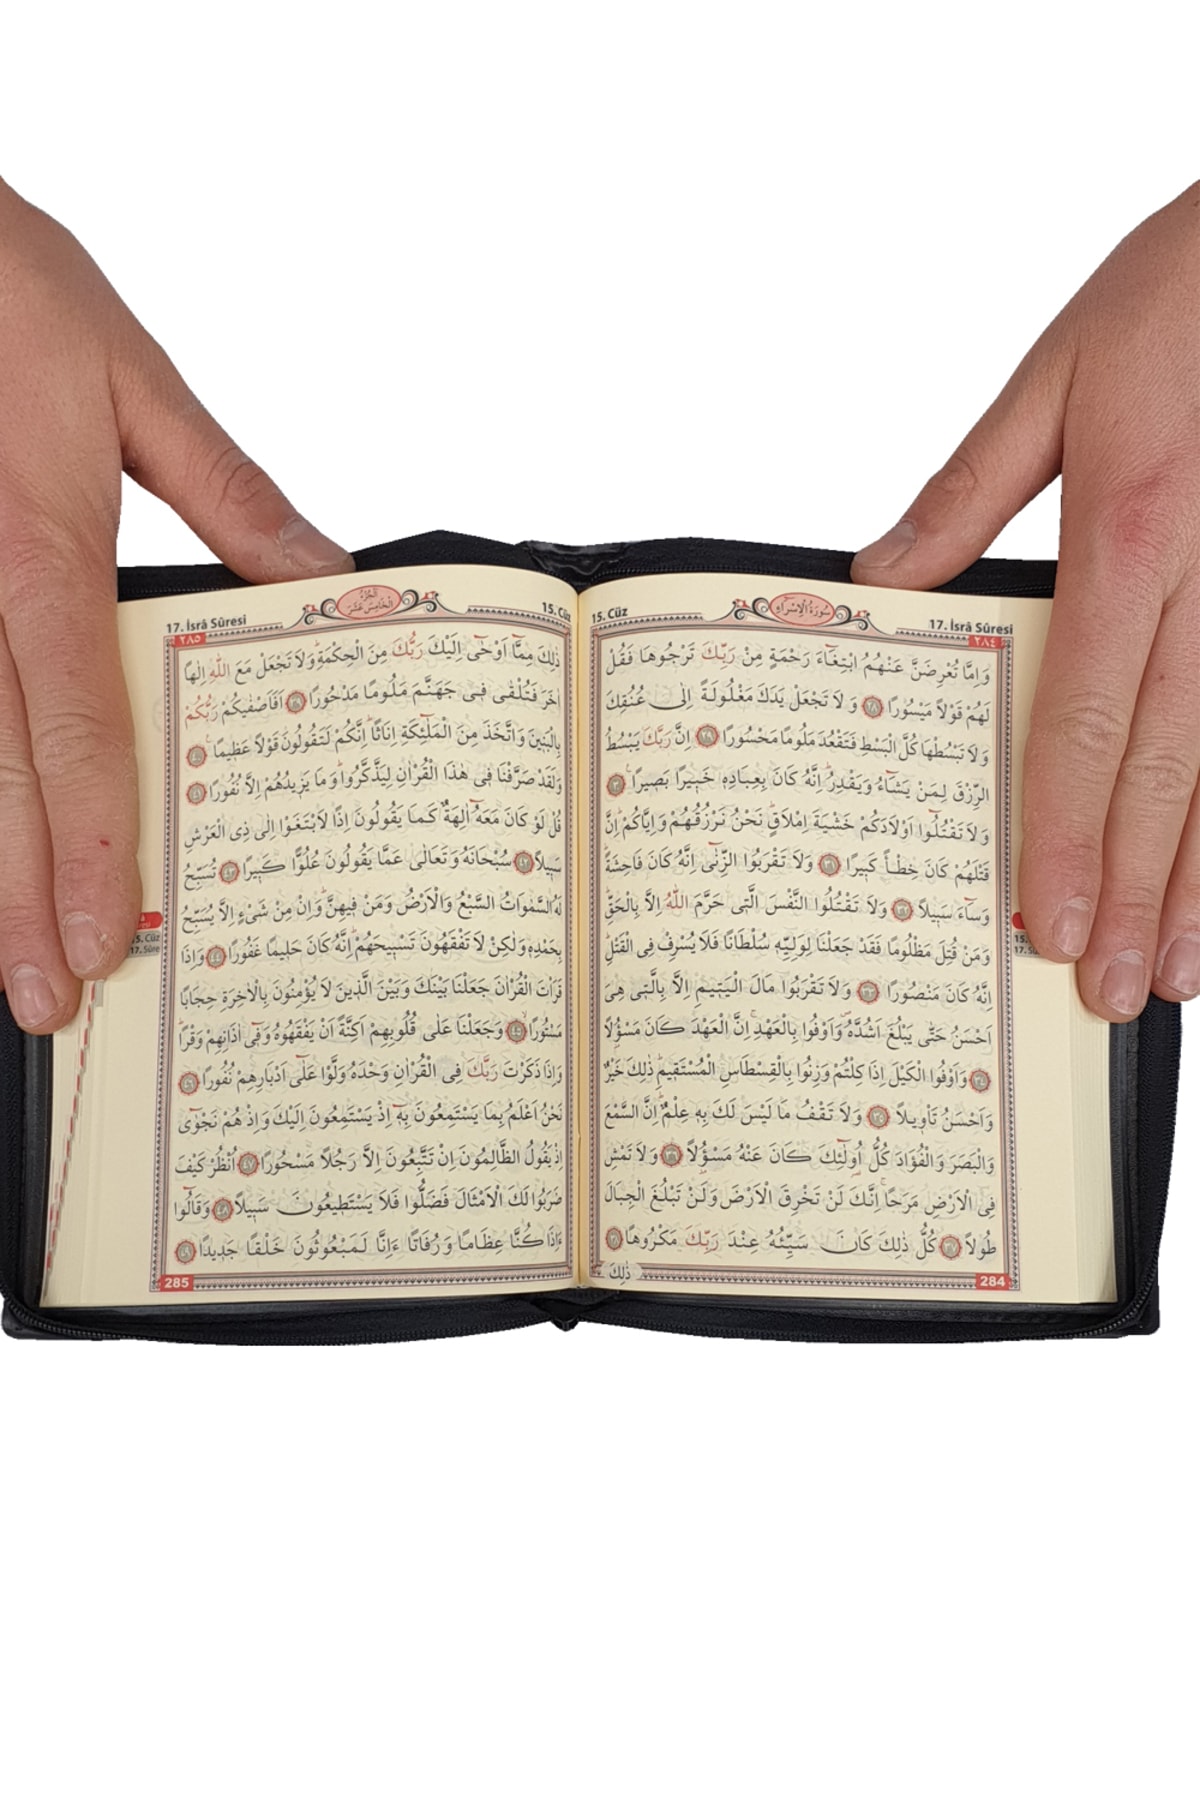 15. Cüz
سُورَةُ الْاِسْرَاءِ
17. İsrâ Sûresi
٢٨٤
وَاِمَّا تُعْرِضَنَّ عَنْهُمُ ابْتِغَٓاءَ رَحْمَةٍ مِنْ رَبِّكَ تَرْجُوهَا فَقُلْ
لَهُمْ قَوْلًا مَيْسُورًا ﴿٢٨﴾ وَلَا تَجْعَلْ يَدَكَ مَغْلُولَةً اِلٰى عُنُقِكَ
وَلَا تَبْسُطْهَا كُلَّ الْبَسْطِ فَتَقْعُدَ مَلُومًا مَحْسُورًا ﴿٢٩﴾ اِنَّ رَبَّكَ يَبْسُطُ
الرِّزْقَ لِمَنْ يَشَٓاءُ وَيَقْدِرُۜ اِنَّهُ كَانَ بِعِبَادِه۪ خَب۪يرًا بَص۪يرًا ﴿٣٠﴾
وَلَا تَقْتُلُٓوا اَوْلَادَكُمْ خَشْيَةَ اِمْلَاقٍۜ نَحْنُ نَرْزُقُهُمْ وَاِيَّاكُمْۜ اِنَّ
قَتْلَهُمْ كَانَ خِطْـًٔا كَب۪يرًا ﴿٣١﴾ وَلَا تَقْرَبُوا الزِّنٰٓى اِنَّهُ كَانَ فَاحِشَةًۜ
وَسَٓاءَ سَب۪يلًا ﴿٣٢﴾ وَلَا تَقْتُلُوا النَّفْسَ الَّت۪ي حَرَّمَ اللّٰهُ اِلَّا بِالْحَقِّۜ
وَمَنْ قُتِلَ مَظْلُومًا فَقَدْ جَعَلْنَا لِوَلِيِّه۪ سُلْطَانًا فَلَا يُسْرِفْ فِي الْقَتْلِۜ
اِنَّهُ كَانَ مَنْصُورًا ﴿٣٣﴾ وَلَا تَقْرَبُوا مَالَ الْيَت۪يمِ اِلَّا بِالَّت۪ي هِيَ
اَحْسَنُ حَتّٰى يَبْلُغَ اَشُدَّهُۖ وَاَوْفُوا بِالْعَهْدِۚ اِنَّ الْعَهْدَ كَانَ مَسْؤُ۫لًا
﴿٣٤﴾ وَاَوْفُوا الْكَيْلَ اِذَا كِلْتُمْ وَزِنُوا بِالْقِسْطَاسِ الْمُسْتَق۪يمِۜ ذٰلِكَ خَيْرٌ
وَاَحْسَنُ تَأْو۪يلًا ﴿٣٥﴾ وَلَا تَقْفُ مَا لَيْسَ لَكَ بِه۪ عِلْمٌۜ اِنَّ السَّمْعَ
وَالْبَصَرَ وَالْفُؤٰادَ كُلُّ اُو۬لٰٓئِكَ كَانَ عَنْهُ مَسْؤُ۫لًا ﴿٣٦﴾ وَلَا تَمْشِ
فِي الْاَرْضِ مَرَحًاۚ اِنَّكَ لَنْ تَخْرِقَ الْاَرْضَ وَلَنْ تَبْلُغَ الْجِبَالَ
طُولًا ﴿٣٧﴾ كُلُّ ذٰلِكَ كَانَ سَيِّئُهُ عِنْدَ رَبِّكَ مَكْرُوهًا ﴿٣٨﴾
ذٰلِكَ
284
17. İsrâ Sûresi
اَلْجُزْءُ
الْخَامِسَ عَشَرَ
15. Cüz
٢٨٥
ذٰلِكَ مِمَّٓا اَوْحٰٓى اِلَيْكَ رَبُّكَ مِنَ الْحِكْمَةِۜ وَلَا تَجْعَلْ مَعَ اللّٰهِ اِلٰهًا
اٰخَرَ فَتُلْقٰى ف۪ي جَهَنَّمَ مَلُومًا مَدْحُورًا ﴿٣٩﴾ اَفَاَصْفٰيكُمْ رَبُّكُمْ
بِالْبَن۪ينَ وَاتَّخَذَ مِنَ الْمَلٰٓئِكَةِ اِنَاثًاۜ اِنَّكُمْ لَتَقُولُونَ قَوْلًا عَظ۪يمًا۟ ﴿٤٠﴾
وَلَقَدْ صَرَّفْنَا ف۪ي هٰذَا الْقُرْاٰنِ لِيَذَّكَّرُواۜ وَمَا يَز۪يدُهُمْ اِلَّا نُفُورًا ﴿٤١﴾
قُلْ لَوْ كَانَ مَعَهُٓ اٰلِهَةٌ كَمَا يَقُولُونَ اِذًا لَابْتَغَوْا اِلٰى ذِي الْعَرْشِ
سَب۪يلًا ﴿٤٢﴾ سُبْحَانَهُ وَتَعَالٰى عَمَّا يَقُولُونَ عُلُوًّا كَب۪يرًا ﴿٤٣﴾ تُسَبِّحُ
لَهُ السَّمٰوَاتُ السَّبْعُ وَالْاَرْضُ وَمَنْ ف۪يهِنَّۜ وَاِنْ مِنْ شَيْءٍ اِلَّا يُسَبِّحُ
بِحَمْدِه۪ وَلٰكِنْ لَا تَفْقَهُونَ تَسْب۪يحَهُمْۜ اِنَّهُ كَانَ حَل۪يمًا غَفُورًا ﴿٤٤﴾ وَاِذَا
قَرَأْتَ الْقُرْاٰنَ جَعَلْنَا بَيْنَكَ وَبَيْنَ الَّذ۪ينَ لَا يُؤْمِنُونَ بِالْاٰخِرَةِ حِجَابًا
مَسْتُورًاۙ ﴿٤٥﴾ وَجَعَلْنَا عَلٰى قُلُوبِهِمْ اَكِنَّةً اَنْ يَفْقَهُوهُ وَف۪ٓي اٰذَانِهِمْ وَقْرًاۜ
وَاِذَا ذَكَرْتَ رَبَّكَ فِي الْقُرْاٰنِ وَحْدَهُ وَلَّوْا عَلٰٓى اَدْبَارِهِمْ نُفُورًا ﴿٤٦﴾
نَحْنُ اَعْلَمُ بِمَا يَسْتَمِعُونَ بِه۪ٓ اِذْ يَسْتَمِعُونَ اِلَيْكَ وَاِذْ هُمْ نَجْوٰٓى
اِذْ يَقُولُ الظَّالِمُونَ اِنْ تَتَّبِعُونَ اِلَّا رَجُلًا مَسْحُورًا ﴿٤٧﴾ اُنْظُرْ كَيْفَ
ضَرَبُوا لَكَ الْاَمْثَالَ فَضَلُّوا فَلَا يَسْتَط۪يعُونَ سَب۪يلًا ﴿٤٨﴾ وَقَالُٓوا
ءَاِذَا كُنَّا عِظَامًا وَرُفَاتًا ءَاِنَّا لَمَبْعُوثُونَ خَلْقًا جَد۪يدًا ﴿٤٩﴾
285